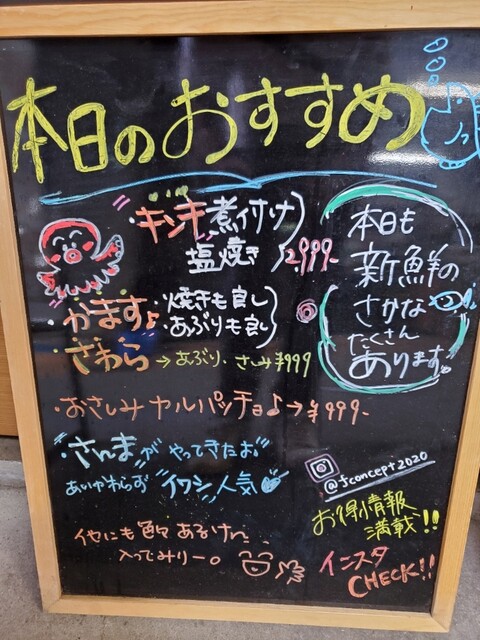 本日のおすすめ
キンキ煮付け
塩焼き
2,999-
本日も
新鮮の
さかな
たくさん
あります。
・かます♪・焼きも良し
・あぶりも良し
・さわら→あぶり、さしみ¥999
・おさしみカルパッチョ♪→¥999-
・さんまがやってきたお"
あいかわらず"イワシ"人気
@fconcept2020
お得情報
満載!!
他にも色々あるけん
入ってみりー。
インスタ
CHECK!!